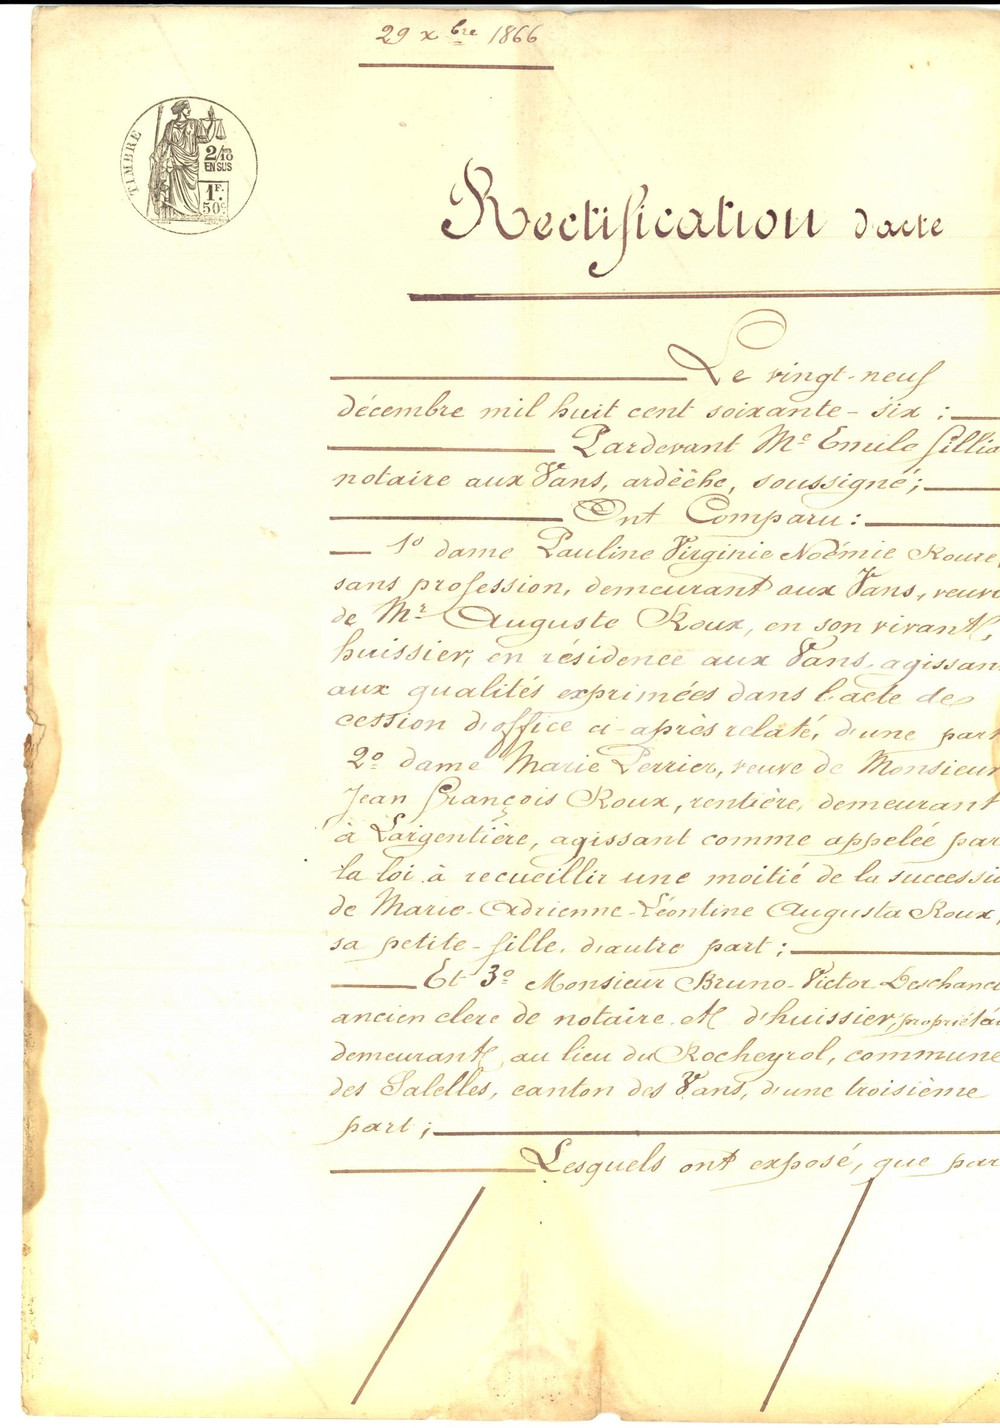 29 xbre 1866
TIMBRE
2/10
EN SUS
1F.
50c
Rectification d'acte
Le vingt-neuf
décembre mil huit cent soixante-six :
Pardevant Me Emile Gillia
notaire aux Vans, ardèche, soussigné;
Ont Comparu :
1o dame Pauline Virginie Noémie Roure,
sans profession, demeurant aux Vans, veuve
de Mr Auguste Roux, en son vivant,
huissier, en résidence aux Vans, agissant
aux qualités exprimées dans l'acte de
cession d'office ci-après relaté, d'une part
2o dame Marie Perrier, veuve de Monsieur
Jean François Roux, rentière, demeurant
à Largentière, agissant comme appelée par
la loi à recueillir une moitié de la successio
de Marie-Adrienne-Léontine Augusta Roux,
sa petite-fille, d'autre part ;
Et 3o Monsieur Bruno-Victor Deschanel
ancien clerc de notaire et d'huissier, propriétai
demeurant au lieu du Rocheyrol, commune
des Salelles, canton des Vans, d'une troisième
part ;
Lesquels ont exposé, que par